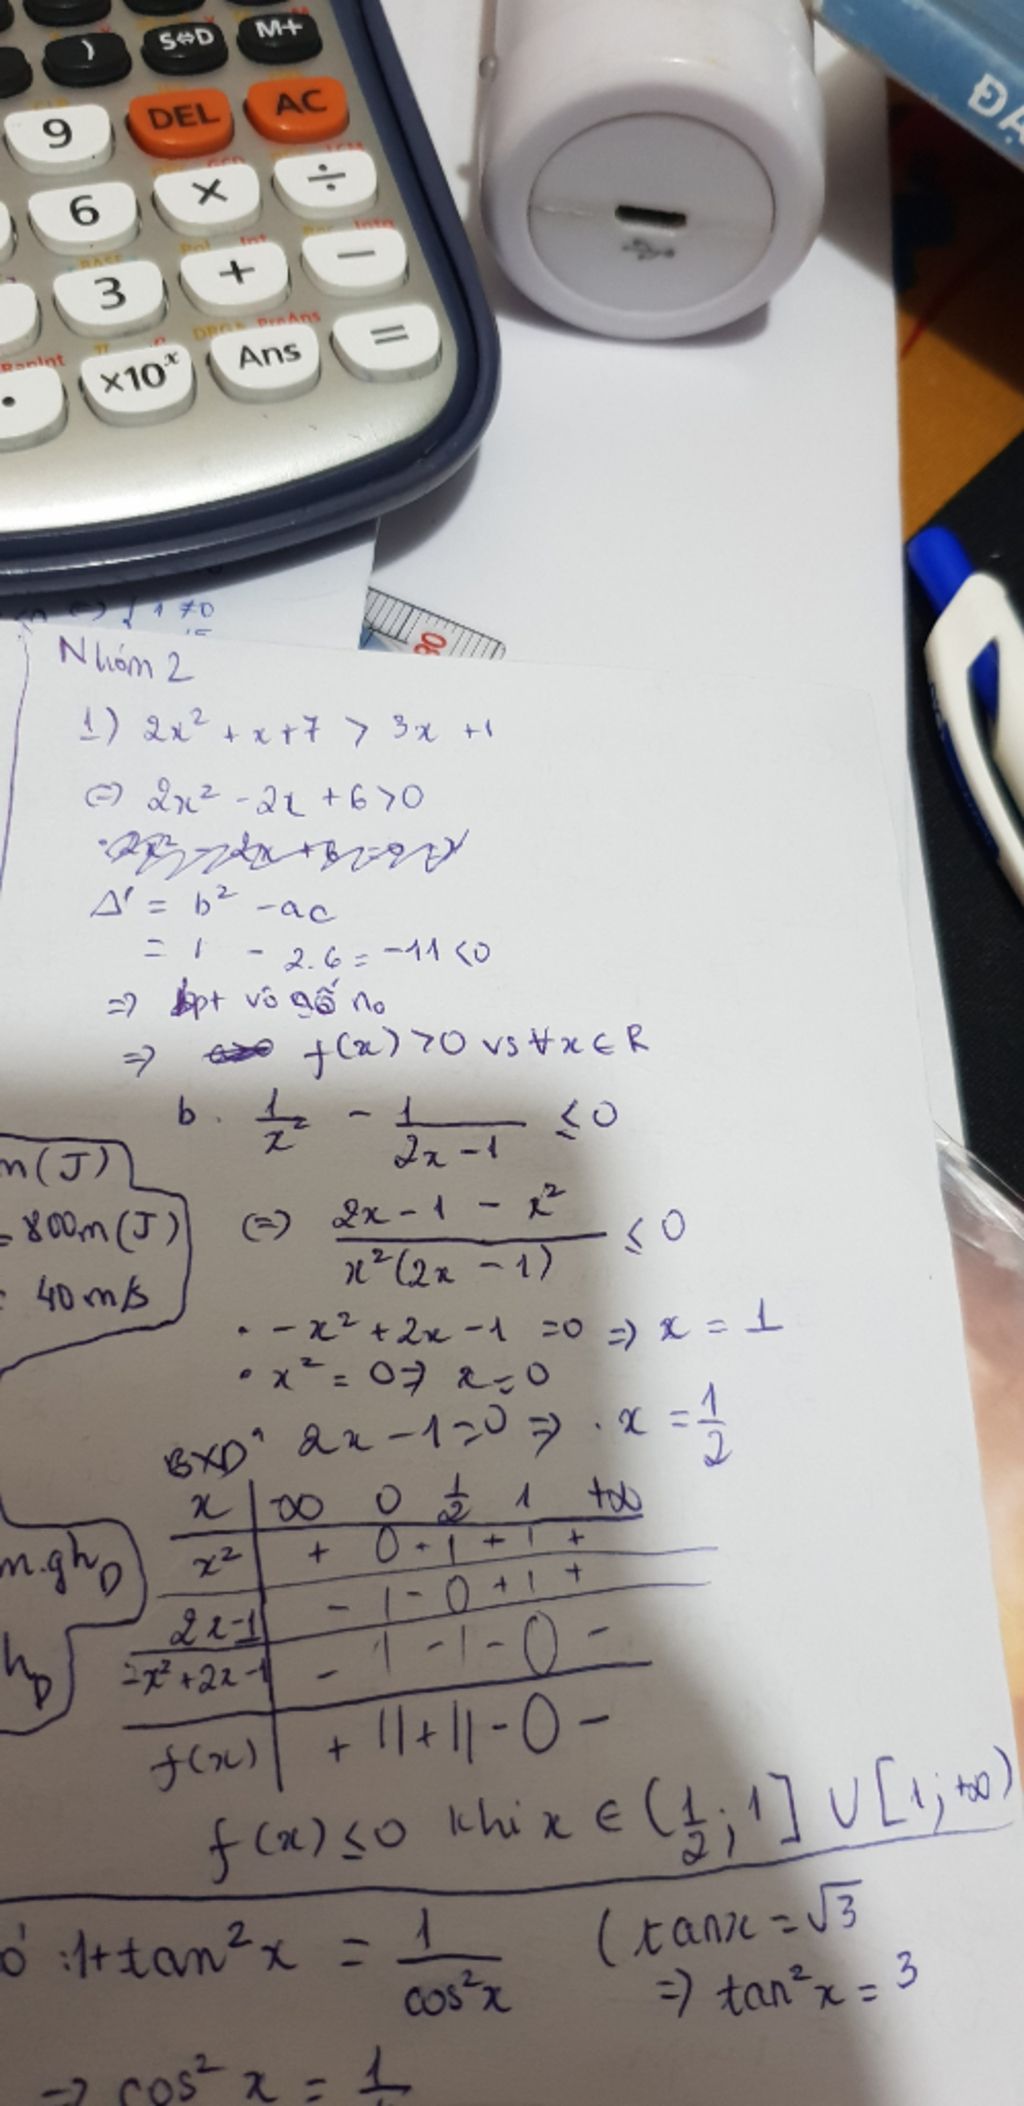 )
S⇔D
M+
9
DEL
AC
6
×
÷
3
+
−
.
×10ˣ
Ans
=
PreAns
ĐẠ
30
1 ≠0
Nhóm 2
1) 2x² + x+7 > 3x +1
(=) 2x² -2x + 6 >0
Δ' = b² -ac
= 1 - 2.6 = -11 <0
=> bpt vô số no
=> f(x) >0 vs ∀x ∈ R
b. 1/x² - 1/(2x-1) ≤ 0
(=) (2x-1 - x²)/(x²(2x-1)) ≤ 0
. -x² +2x-1 =0 => x = 1
. x² = 0 => x=0
2x-1=0 => . x = 1/2
BXD
x | ∞ 0 1/2 1 +∞
x² | + 0 + | + | +
2x-1 | - | - 0 + | +
-x²+2x-1 | - | - | - 0 -
f(x) | + || + || - 0 -
f(x) ≤0 khi x ∈ (1/2; 1] ∪ [1; +∞)
m(J)
= 800m(J)
40 m/s
m.gh_D
h_D
:1+tan²x = 1/cos²x
(tanx = √3
=> tan²x = 3
=> cos²x = 1